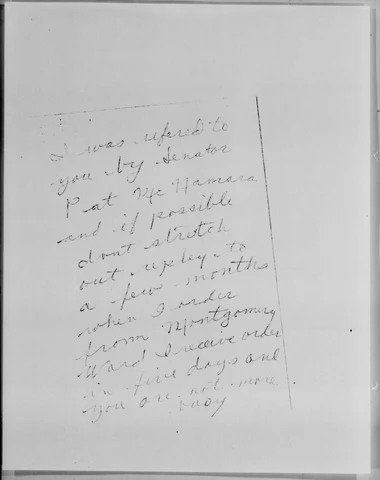 I was refered to
you by Senator
Pat Mc Namara
and if possible
dont stretch
out reply to
a few months
when I order
from Montgomery
Ward I receive order
in five days and
you are not more
busy